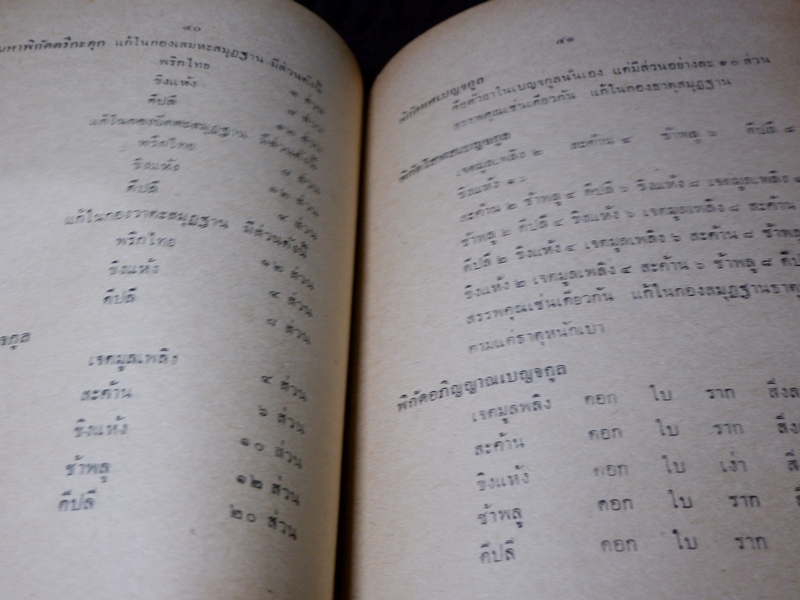 ๔๐
มหาพิกัดตรีกะตุก แก้ในกองเสมหะสมุฏฐาน มีส่วนดังนี้
พริกไทย
ขิงแห้ง ๘ ส่วน
ดีปลี ๑๒ ส่วน
แก้ในกองปิตตะสมุฏฐาน มีส่วนดังนี้
พริกไทย ๘ ส่วน
ขิงแห้ง ๑๒ ส่วน
ดีปลี ๔ ส่วน
แก้ในกองวาตะสมุฏฐาน มีส่วนดังนี้
พริกไทย ๑๒ ส่วน
ขิงแห้ง ๔ ส่วน
ดีปลี ๘ ส่วน
เจตมูลเพลิง ๔ ส่วน
สะค้าน ๖ ส่วน
ขิงแห้ง ๑๐ ส่วน
ช้าพลู ๑๒ ส่วน
ดีปลี ๒๐ ส่วน
๔๑
พิกัดทศเบญจกูล
คือตัวยาในเบญจกูลนั่นเอง แต่มีส่วนอย่างละ ๑๐ ส่วน
สรรพคุณเช่นเดียวกัน แก้ในกองธาตุสมุฏฐาน
พิกัดโสฬสเบญจกูล
เจตมูลเพลิง ๒ สะค้าน ๔ ช้าพลู ๖ ดีปลี ๘
ขิงแห้ง
สะค้าน ๒ ช้าพลู ๔ ดีปลี ๖ ขิงแห้ง ๘ เจตมูลเพลิง
ช้าพลู ๒ ดีปลี ๔ ขิงแห้ง ๖ เจตมูลเพลิง ๘ สะค้าน
ดีปลี ๒ ขิงแห้ง ๔ เจตมูลเพลิง ๖ สะค้าน ๘ ช้าพลู
ขิงแห้ง ๒ เจตมูลเพลิง ๔ สะค้าน ๖ ช้าพลู ๘ ดีปลี
สรรพคุณเช่นเดียวกัน แก้ในกองสมุฏฐานธาตุ
ตามแต่ธาตุหนักเบา
พิกัดอภิญญาณเบญจกูล
เจตมูลพลิง ดอก ใบ ราก
สะค้าน ดอก ใบ ราก
ขิงแห้ง ดอก ใบ เง่า
ช้าพลู ดอก ใบ ราก
ดีปลี ดอก ใบ ราก